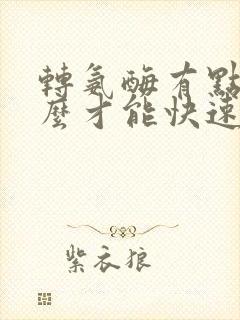 轉氨酶有點
麼才能快速
紫衣狼